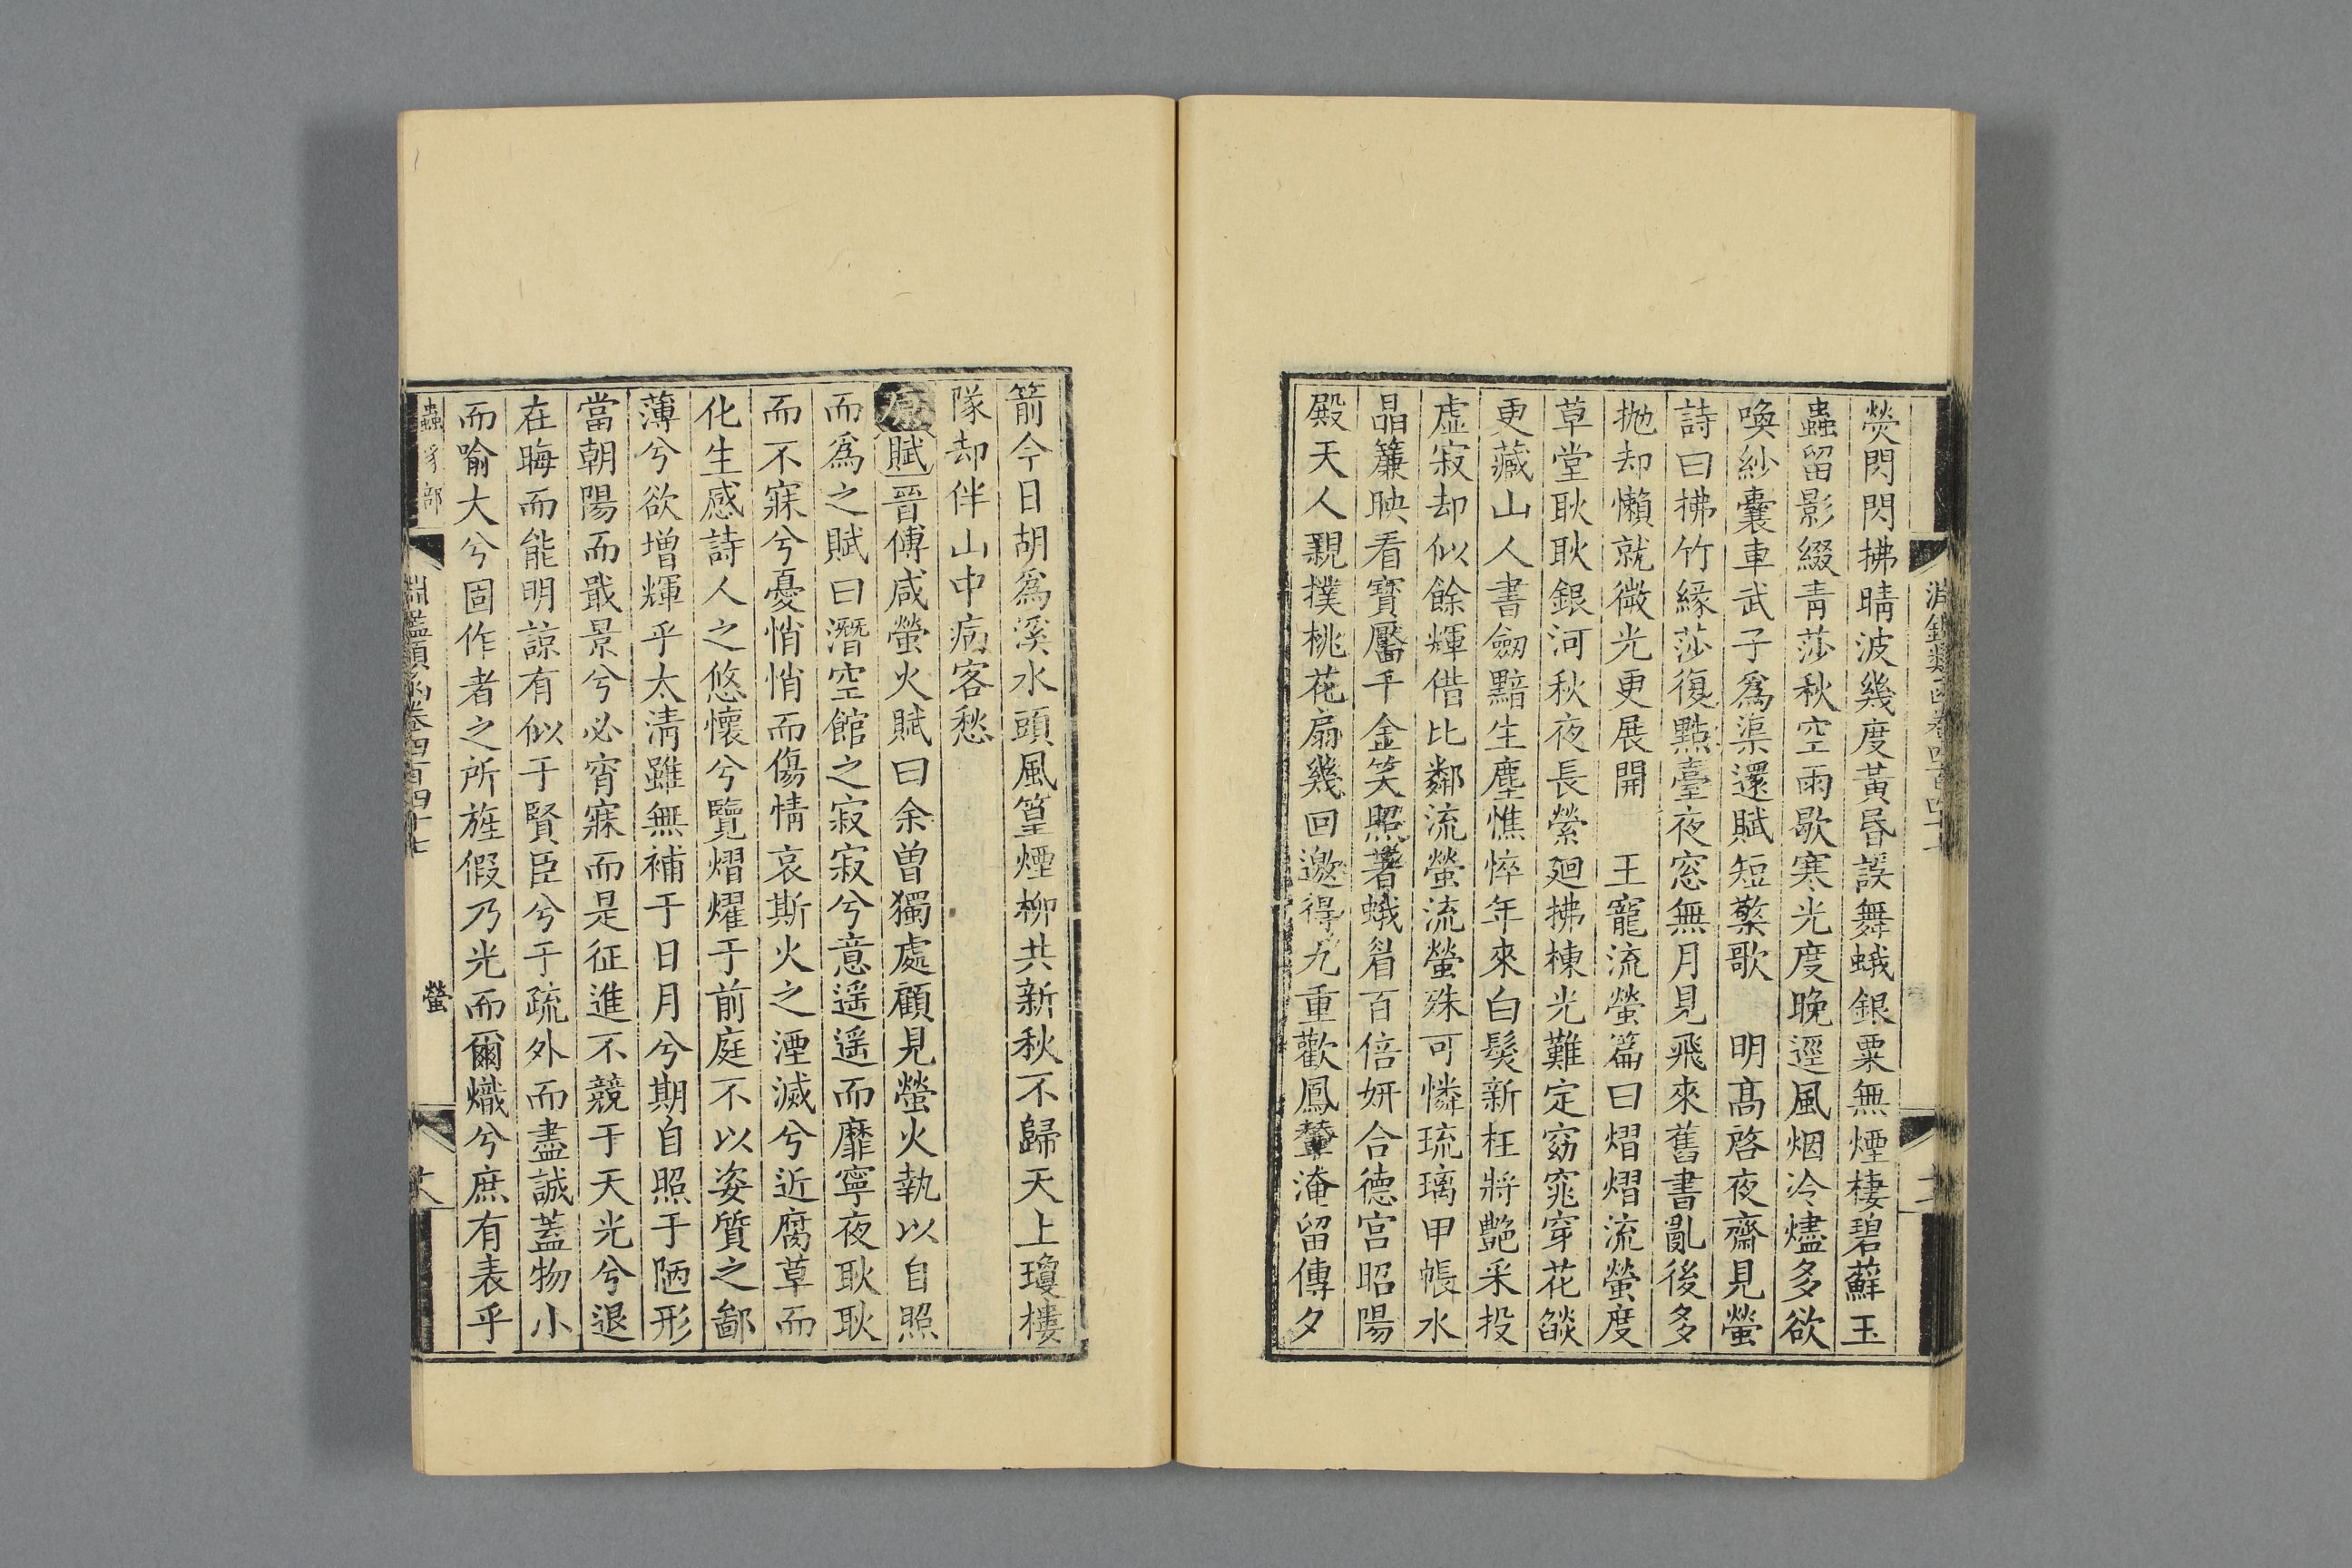 熒閃閃拂晴波幾度黃昏誤舞蛾銀粟無煙棲碧蘚玉
蟲留影綴青莎秋空雨歇寒光度晚逕風烟冷燼多欲
喚紗囊車武子爲渠還賦短檠歌 明髙啓夜齋見螢
詩曰拂竹緣莎復點臺夜窓無月見飛來舊書亂後多
抛却懶就微光更展開 王寵流螢篇曰熠熠流螢度
草堂耿耿銀河秋夜長縈廻拂棟光難定窈窕穿花燄
更藏山人書劒黯生塵憔悴年來白髮新枉將艷采投
虛寂却似餘輝借比鄰流螢流螢殊可憐琉璃甲帳水
晶簾映看寳靨千金笑照著蛾眉百倍妍合德宫昭陽
殿天人親撲桃花扇幾回邀得九重歡鳳輦淹留傳夕
箭今日胡爲溪水頭風篁煙柳共新秋不歸天上瓊樓
隊却伴山中病客愁
原賦晉傅咸螢火賦曰余曾獨處顧見螢火執以自照
而爲之賦曰潛空館之寂寂兮意遥遥而靡寧夜耿耿
而不寐兮憂悄悄而傷情哀斯火之湮滅兮近腐草而
化生感詩人之悠懷兮覽熠燿于前庭不以姿質之鄙
薄兮欲增輝乎太清雖無補于日月兮期自照于陋形
當朝陽而戢景兮必宵寐而是征進不競于天光兮退
在晦而能明諒有似于賢臣兮于疏外而盡誠蓋物小
而喻大兮固作者之所旌假乃光而爾熾兮庶有表乎
蟲豸部 淵鑑類函卷四百四十七 螢